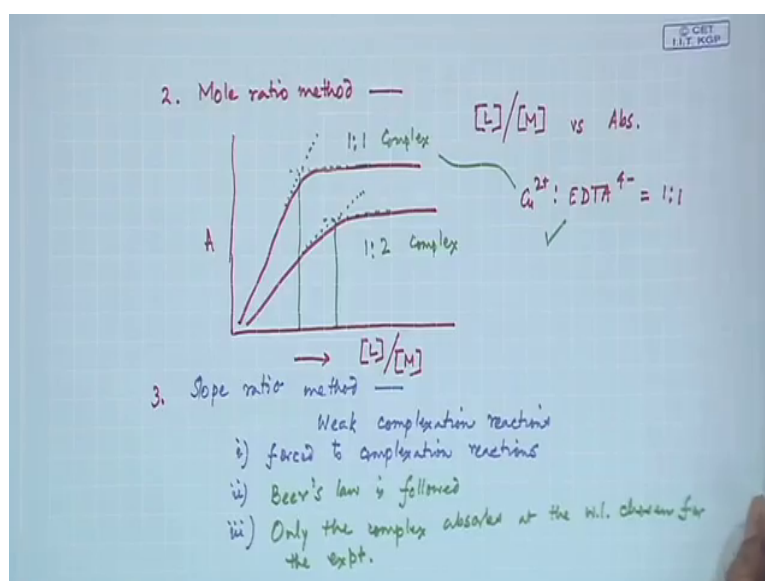 © CET
I.I.T. KGP
2. Mole ratio method —
[L]/[M] vs Abs.
1:1 Complex
Cu²⁺ : EDTA⁴⁻ = 1:1
A
1:2 Complex
→ [L]/[M]
3. Slope ratio method —
Weak complexation reactions
i) forced to complexation reactions
ii) Beer's law is followed
iii) Only the complex absorbs at the w.l. chosen for
the expt.